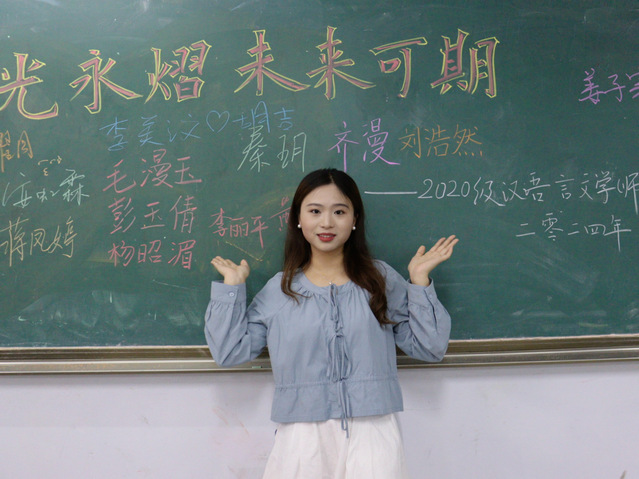 光永熠 未来可期
姜子
李美汶♡胡吉
秦玥
齐漫
刘浩然
毛漫玉
彭玉倩
杨昭湄
李丽平
蒋凤婷
——2020级汉语言文学师
二零二四年